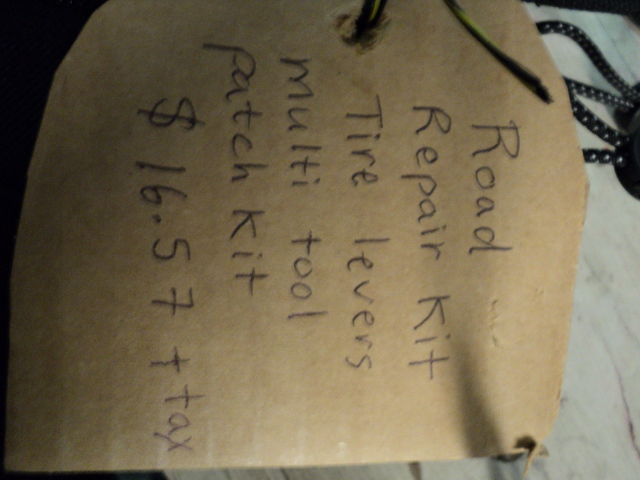 Road
Repair Kit
Tire levers
multi tool
patch kit
$ 16.57 + tax